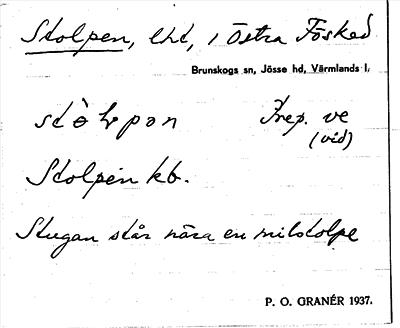 Stolpen, lht, i Östra Fösked
Brunskogs sn, Jösse hd, Värmlands l.
Prep. ve
(vid)
Stolpen kb.
Stugan står nära en milstolpe
P. O. GRANÉR 1937.